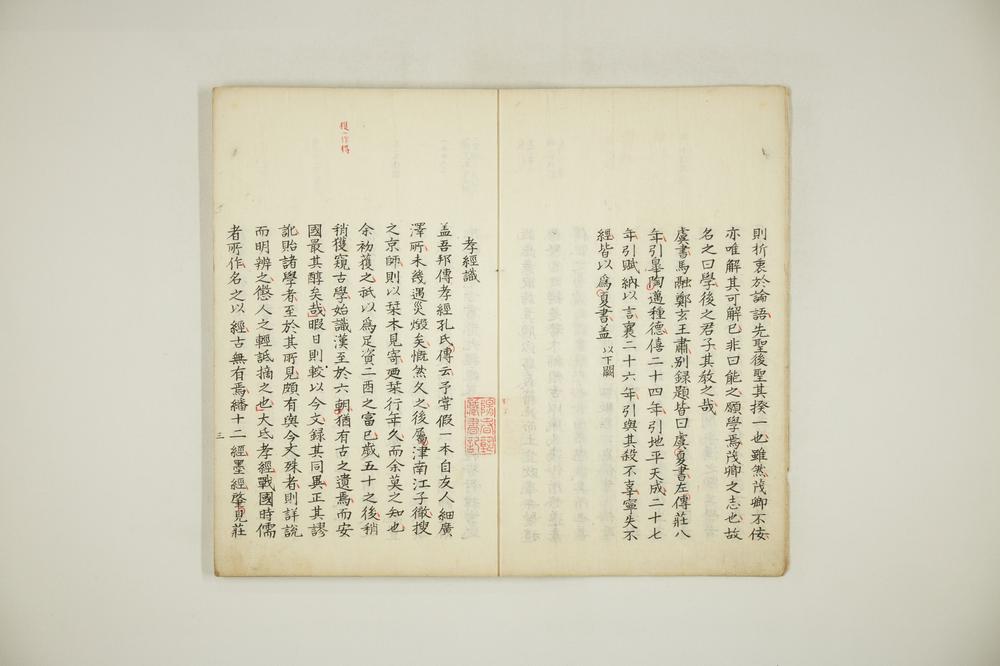 則折衷於論語先聖後聖其揆一也雖然茂卿不佞
亦唯解其可解已非曰能之願學焉茂卿之志也故
名之曰學後之君子其敎之哉
虞書馬融鄭玄王肅別録題皆曰虞夏書左傳莊八
年引皐陶邁種德僖二十四年引地平天成二十七
年引賦納以言襄二十六年引與其殺不辜寧失不
經皆以爲夏書盖 以下闕
孝經識
盖吾邦傳孝經孔氏傳云予嘗假一本自友人細廣
澤所未幾遇災燬矣慨然久之後屬津南江子徹搜
之京師則以栞本見寄廼栞行年久而余莫之知也
余初獲之祇以爲足資二酉之富已歲五十之後稍
稍獲窺古學始識漢至於六朝猶有古之遺焉而安
國最其醇矣哉暇日則較以今文録其同異正其謬
訛貽諸學者至於其所見頗有與今文殊者則詳説
而明辨之懲人之輕詆摘之也大氐孝經戰國時儒
者所作名之以經古無有焉繙十二經墨經肇見莊
獲作得
三